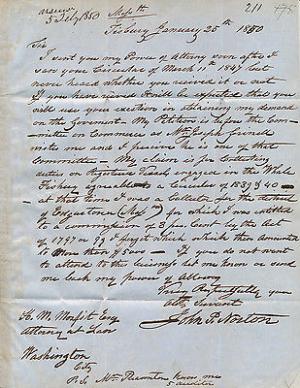 Tisbury January 25th 1850
Sir
I sent you my Power of Attorny soon after I
saw your Circular of March 1st 1847 but
never heard whether you received it or not
If you have received it will be expected that you
will use your exertion in obtaining my demand
on the Government. My Petition is before the Com-
mittee on Commerce as Mr Joseph Grinnell
writes me and I presume he is one of that
Committee - My claim is for Collecting
duties on Registered Vessels engaged in the Whale
Fishery agreeable to a Circular of 1839 & 40
at that time I was a Collector for the district
of Edgartown (Mass) for which I was entitled
to a commission of 3 per Cent by the Act
of 1797 or 99 I forget which which then amounted
to More than $500 - If you do not want
to attend to the business let me know or send
me back my power of Attorny
Very Respectfully your
Obt Servant
John P. Norton
H. M. Morfit Esq
Attorney at Law
Washington
City
P.S. Mr Thornton knows me
5 auditor
211